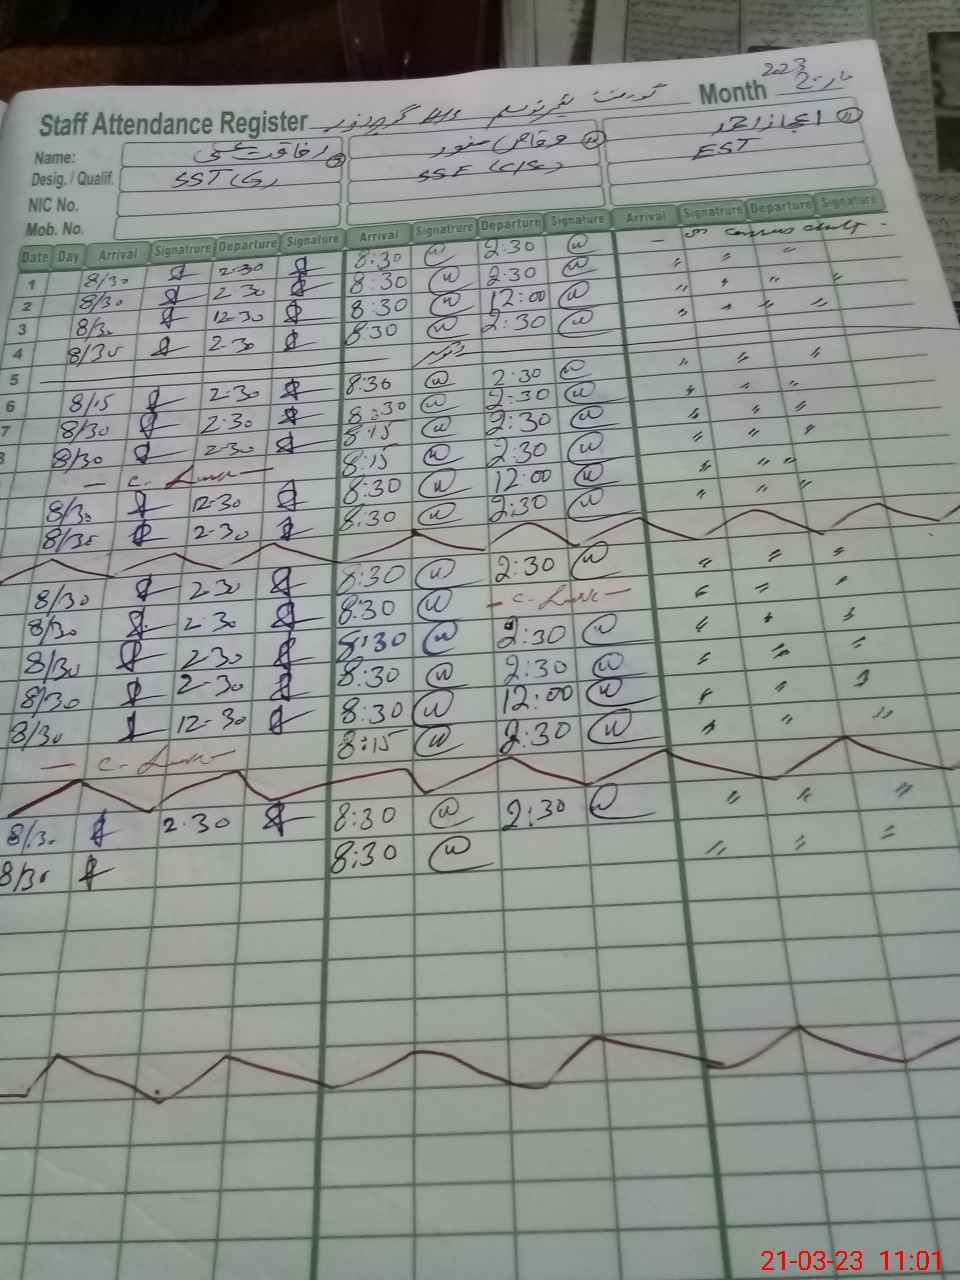 Staff Attendance Register Month مارچ 2023
Name: رفاقت علی وقاص منور اعجاز احمد
Desig. / Qualif. SST (G) SSE EST
NIC No.
Mob. No.
Date Day Arrival Signatrure Departure Signature Arrival Signatrure Departure Signature Arrival Signatrure Departure Signature
1 8/30 2:30 8:30 2:30 — on census duty -
2 8/30 2:30 8:30 2:30 " " "
3 8/30 12:30 8:30 12:00 " " " "
4 8/30 2:30 8:30 2:30 " " " "
5
6 8/15 2:30 8:30 2:30 " " "
7 8/30 2:30 8:30 2:30 " " "
8/30 2:30 8:15 2:30 " " "
— C. Leave — 8:15 2:30 " " "
8/30 12:30 8:30 12:00 " " "
8/30 2:30 8:30 2:30 " " "
8/30 2:30 8:30 2:30 " " "
8/30 2:30 8:30 — C. Leave — " " "
8/30 2:30 8:30 2:30 " " "
8/30 2:30 8:30 2:30 " " "
8/30 12-30 8:30 12:00 " " "
— C. Leave — 8:15 2:30 " " "
8/30 2:30 8:30 2:30 " " "
8/30 8:30 " " "
21-03-23 11:01